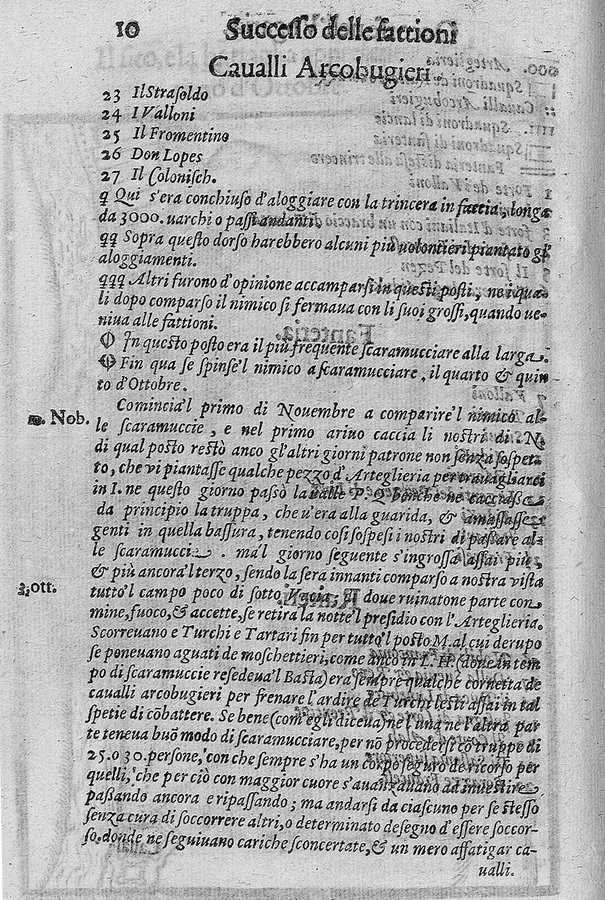 10 Successo delle fattioni
Caualli Arcobugieri.
23 Il Strasoldo
24 I Valloni
25 Il Fromentino
26 Don Lopes
27 Il Colonisch.
q Qui s'era conchiuso d'aloggiare con la trincera in faccia, longa
da 3000. uarchi o passi andanti.
qq Sopra questo dorso harebbero alcuni più uolontieri piantato gl'
aloggiamenti.
qqq Altri furono d'opinione accamparsi in questi posti, ne i qua-
li dopo comparso il nimico si fermaua con li suoi grossi, quando ue-
niua alle fattioni.
In questo posto era il più frequente scaramucciare alla larga.
Fin qua se spinse'l nimico a scaramucciare, il quarto & quin
to d'Ottobre.
Comincia'l primo di Nouembre a comparire'l nimico al-
Nob.
le scaramuccie, e nel primo ariuo caccia li nostri di. N.
di qual posto restò anco gl'altri giorni patrone non senza sospet-
to, che vi piantasse qualche pezzo d'Arteglieria per trauagliarci
in I. ne questo giorno passò la ualle P. Q benche ne cacciasse
da principio la truppa, che u'era alla guarida, & amassasse
genti in quella bassura, tenendo cosi sospesi i nostri di passare al-
le scaramucci . ma'l giorno seguente s'ingrossa assai più,
& più ancora'l terzo, sendo la sera innanti comparso a nostra vista
3. ott.
tutto'l campo poco di sotto di doue ruinatone parte con
mine, fuoco, & accette, se retira la notte'l presidio con l'Arteglieria.
Scorreuano e Turchi e Tartari fin per tutto'l posto M. al cui derupo
se poneuano aguati de moschettieri, come anco in L. H. (doue in tem
po di scaramuccie resedeua'l Basta) era sempre qualche cornetta de
caualli arcobugieri per frenare l'ardire de Turchi lesti assai in tal
spetie di cõbattere. Se bene (com'egli diceua) ne l'una ne l'altra par
te teneua buõ modo di scaramucciare, per nõ procedersi cõ truppe di
25. o 30. persone, con che sempre s'ha un corpo seguro de ricorso per
quelli, che per ciò con maggior cuore s'auanzauano ad inuestire
passando ancora e ripassando; ma andarsi da ciascuno per se stesso
senza cura di soccorrere altri, o determinato desegno d'essere soccor-
so. donde ne seguiuano cariche sconcertate, & un mero affatigar ca-
ualli.